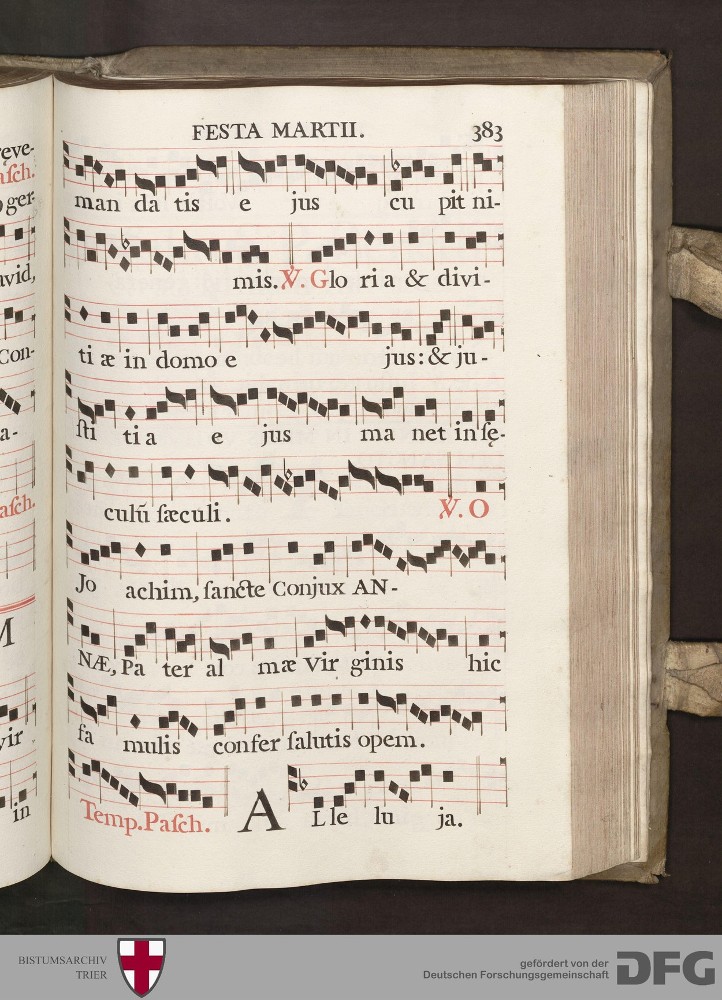 ręve-
asch.
ger
avid,
Con-
a-
asch.
M
vir
in
FESTA MARTII. 383
man da tis e jus cu pit ni-
mis. ℣. Glo ri a & divi-
ti æ in domo e jus: & ju-
sti ti a e jus ma net in sę-
culū sæculi. ℣. O
Jo achim, sancte Conjux AN-
NÆ, Pa ter al mæ Vir ginis hic
fa mulis confer salutis opem.
Temp. Pasch. A Lle lu ja.
BISTUMSARCHIV
TRIER
gefördert von der
Deutschen Forschungsgemeinschaft
DFG